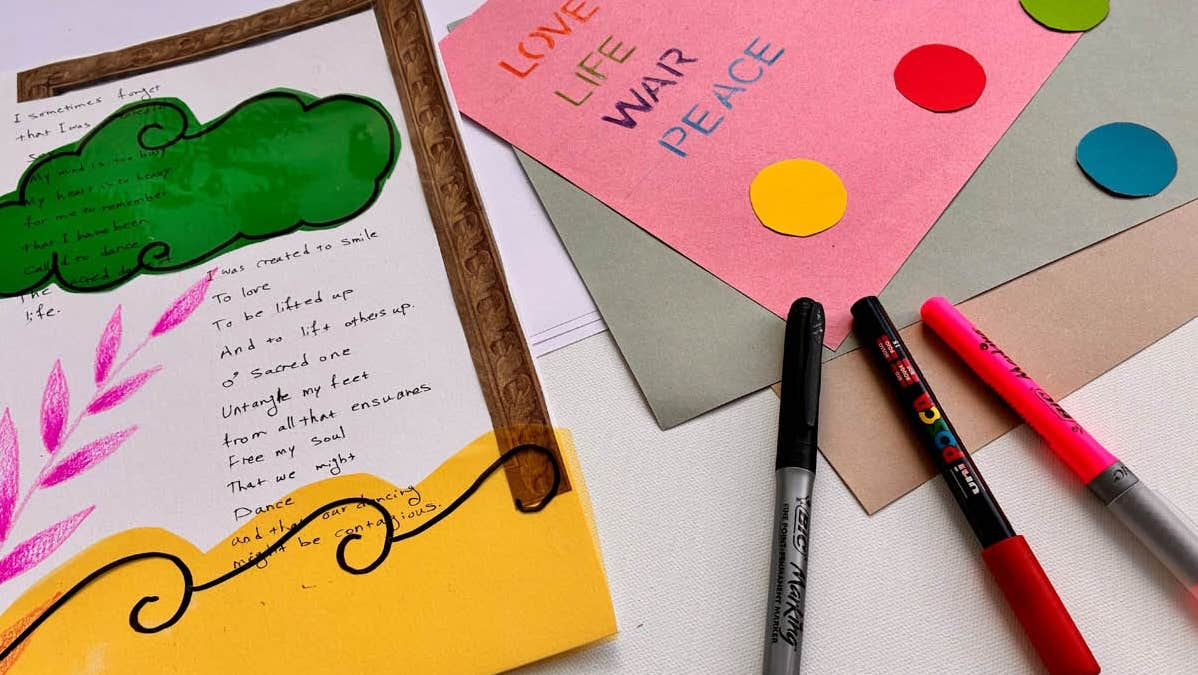 I sometimes forget
that I was created
My mind is too busy
My heart is to heavy
for me to remember
that I have been
called to dance
The sacred dance
life.
I was created to smile
To love
To be lifted up
And to lift others up.
O' Sacred one
Untangle my feet
from all that ensuares
Free my soul
That we might
Dance
and that our dancing
might be contagious.
LOVE
LIFE
WAR
PEACE
BIC Marking
FINE POINT PERMANENT MARKER
uni POSCA
BIC